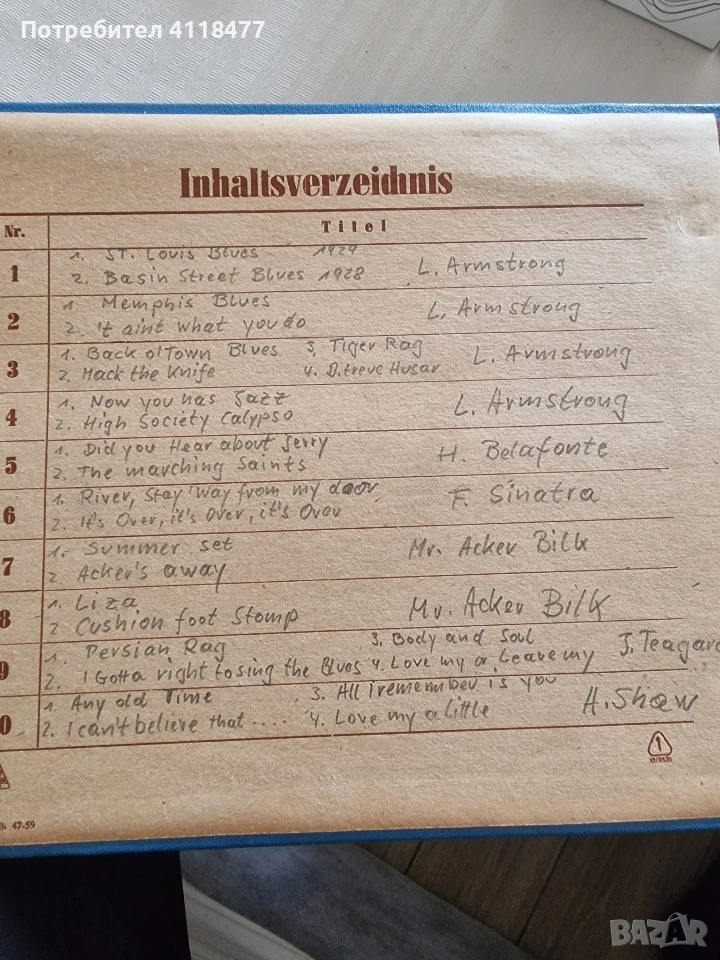 Потребител 4118477
Inhaltsverzeichnis
Nr. Titel
1 1. ST. Louis Blues 1929
2. Basin Street Blues 1928 L. Armstrong
2 1 Memphis Blues
2. 't aint what you do L. Armstrong
3 1. Back o'Town Blues 3, Tiger Rag
2. Mack the Knife 4. D.treue Husar L. Armstrong
4 1. Now you has Jazz
2. High Society Calypso L. Armstrong
5 1. Did you Hear about Jerry
2. The marching Saints H. Belafonte
6 1. River, Stay 'Way from my door
2. It's Over, it's Over, it's Over F. Sinatra
7 1. Summer set
2 Acker's away Mr. Acker Bilk
8 1. Liza
2 Cushion foot Stomp Mr. Acker Bilk
9 1. Persian Rag 3. Body and Soul
2. I Gotta right to sing the Blues 4. Love my or Leave my J. Teagard
0 1 Any old Time 3. All i remember is you
2. I can't believe that .... 4. Love my a little A. Shaw
1
47-59
BAZAR